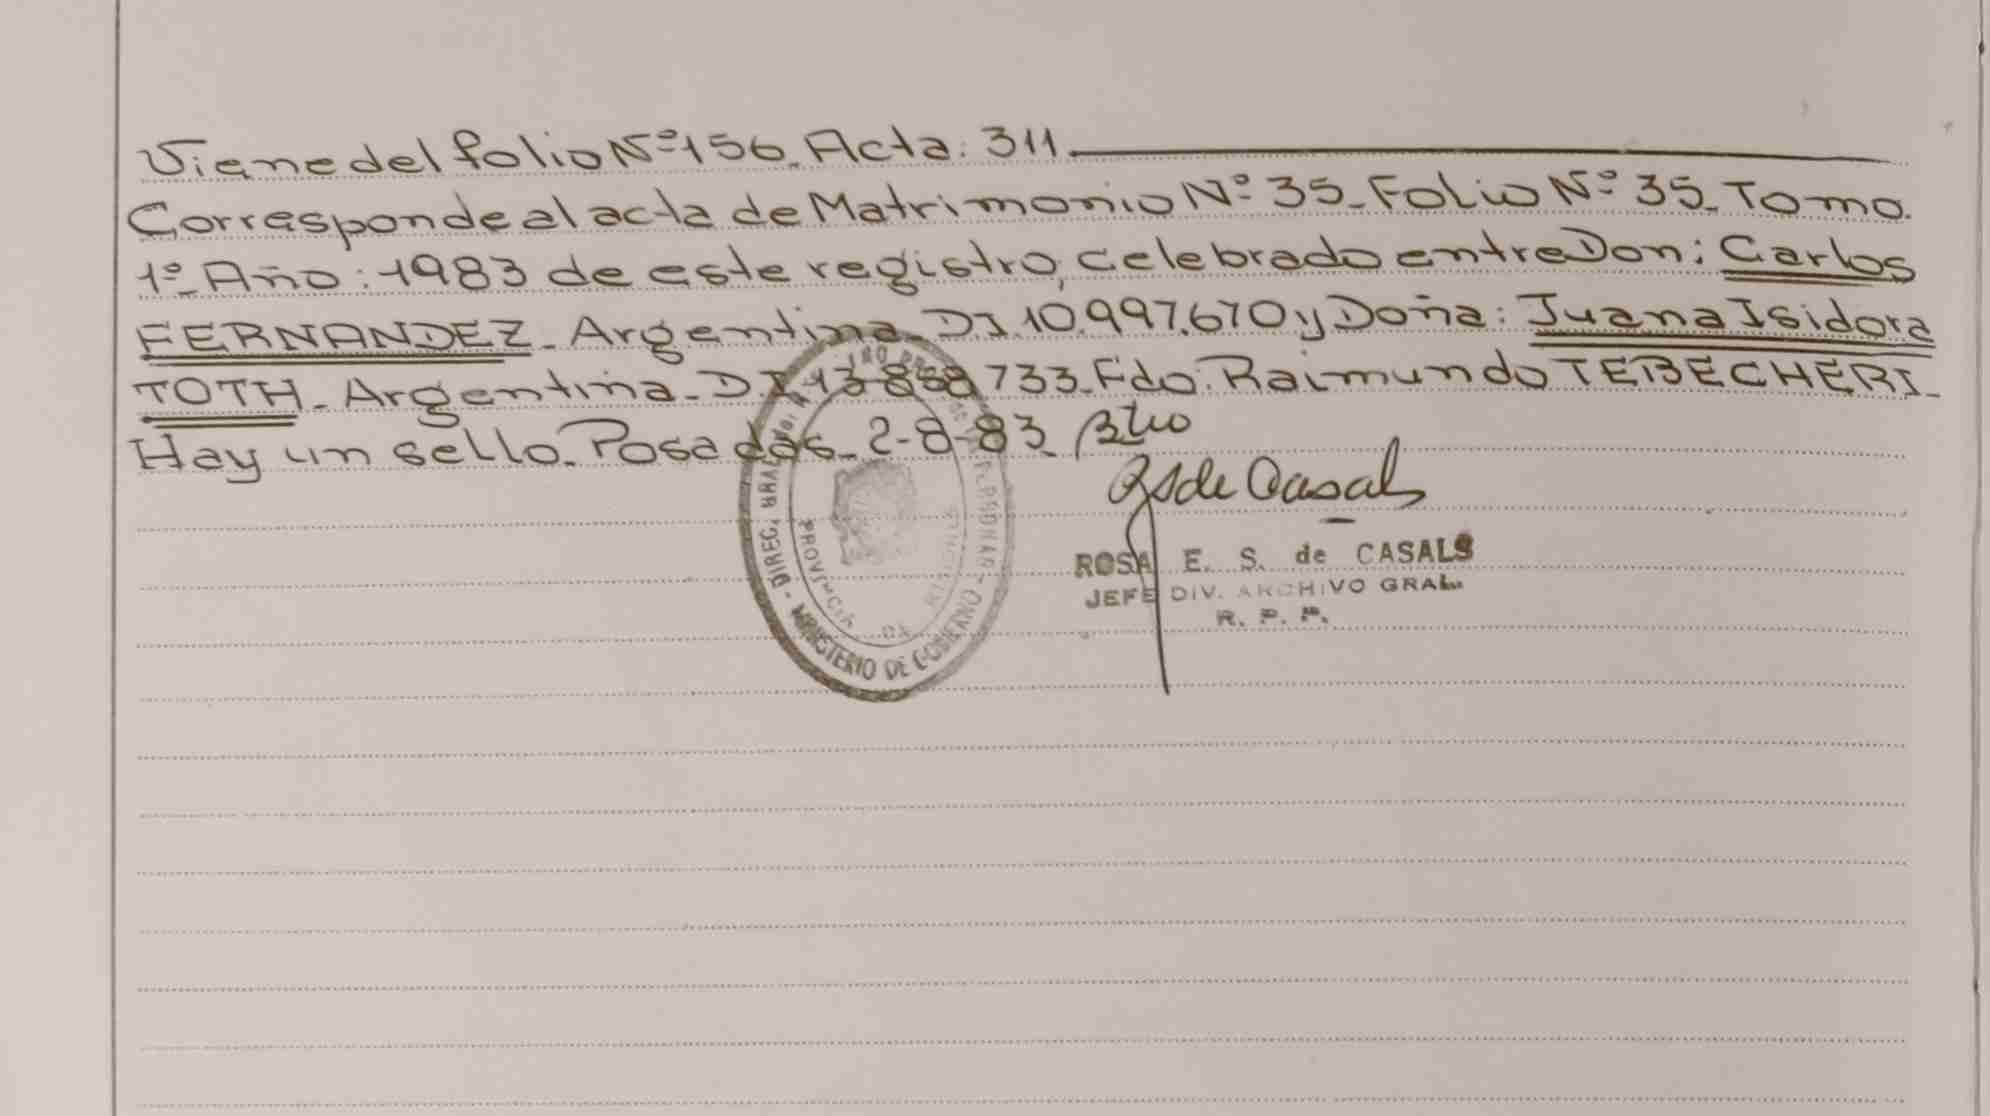 Viene del folio Nº 156. Acta: 311.
Corresponde al acta de Matrimonio Nº 35. Folio Nº 35. Tomo.
1º Año: 1983 de este registro, celebrado entre Don: Carlos
FERNANDEZ. Argentina. D.I. 10.997.670 y Doña: Juana Isidora
TOTH. Argentina. D.I. 13.858.733. Fdo. Raimundo TEBECHERI.
Hay un sello. Posadas. 2-8-83.
RS de Casals
ROSA E. S. de CASALS
JEFE DIV. ARCHIVO GRAL.
R. P. P.
DIREC. GRAL. PERSONAS - MINISTERIO DE GOBIERNO -
PROVINCIA DE